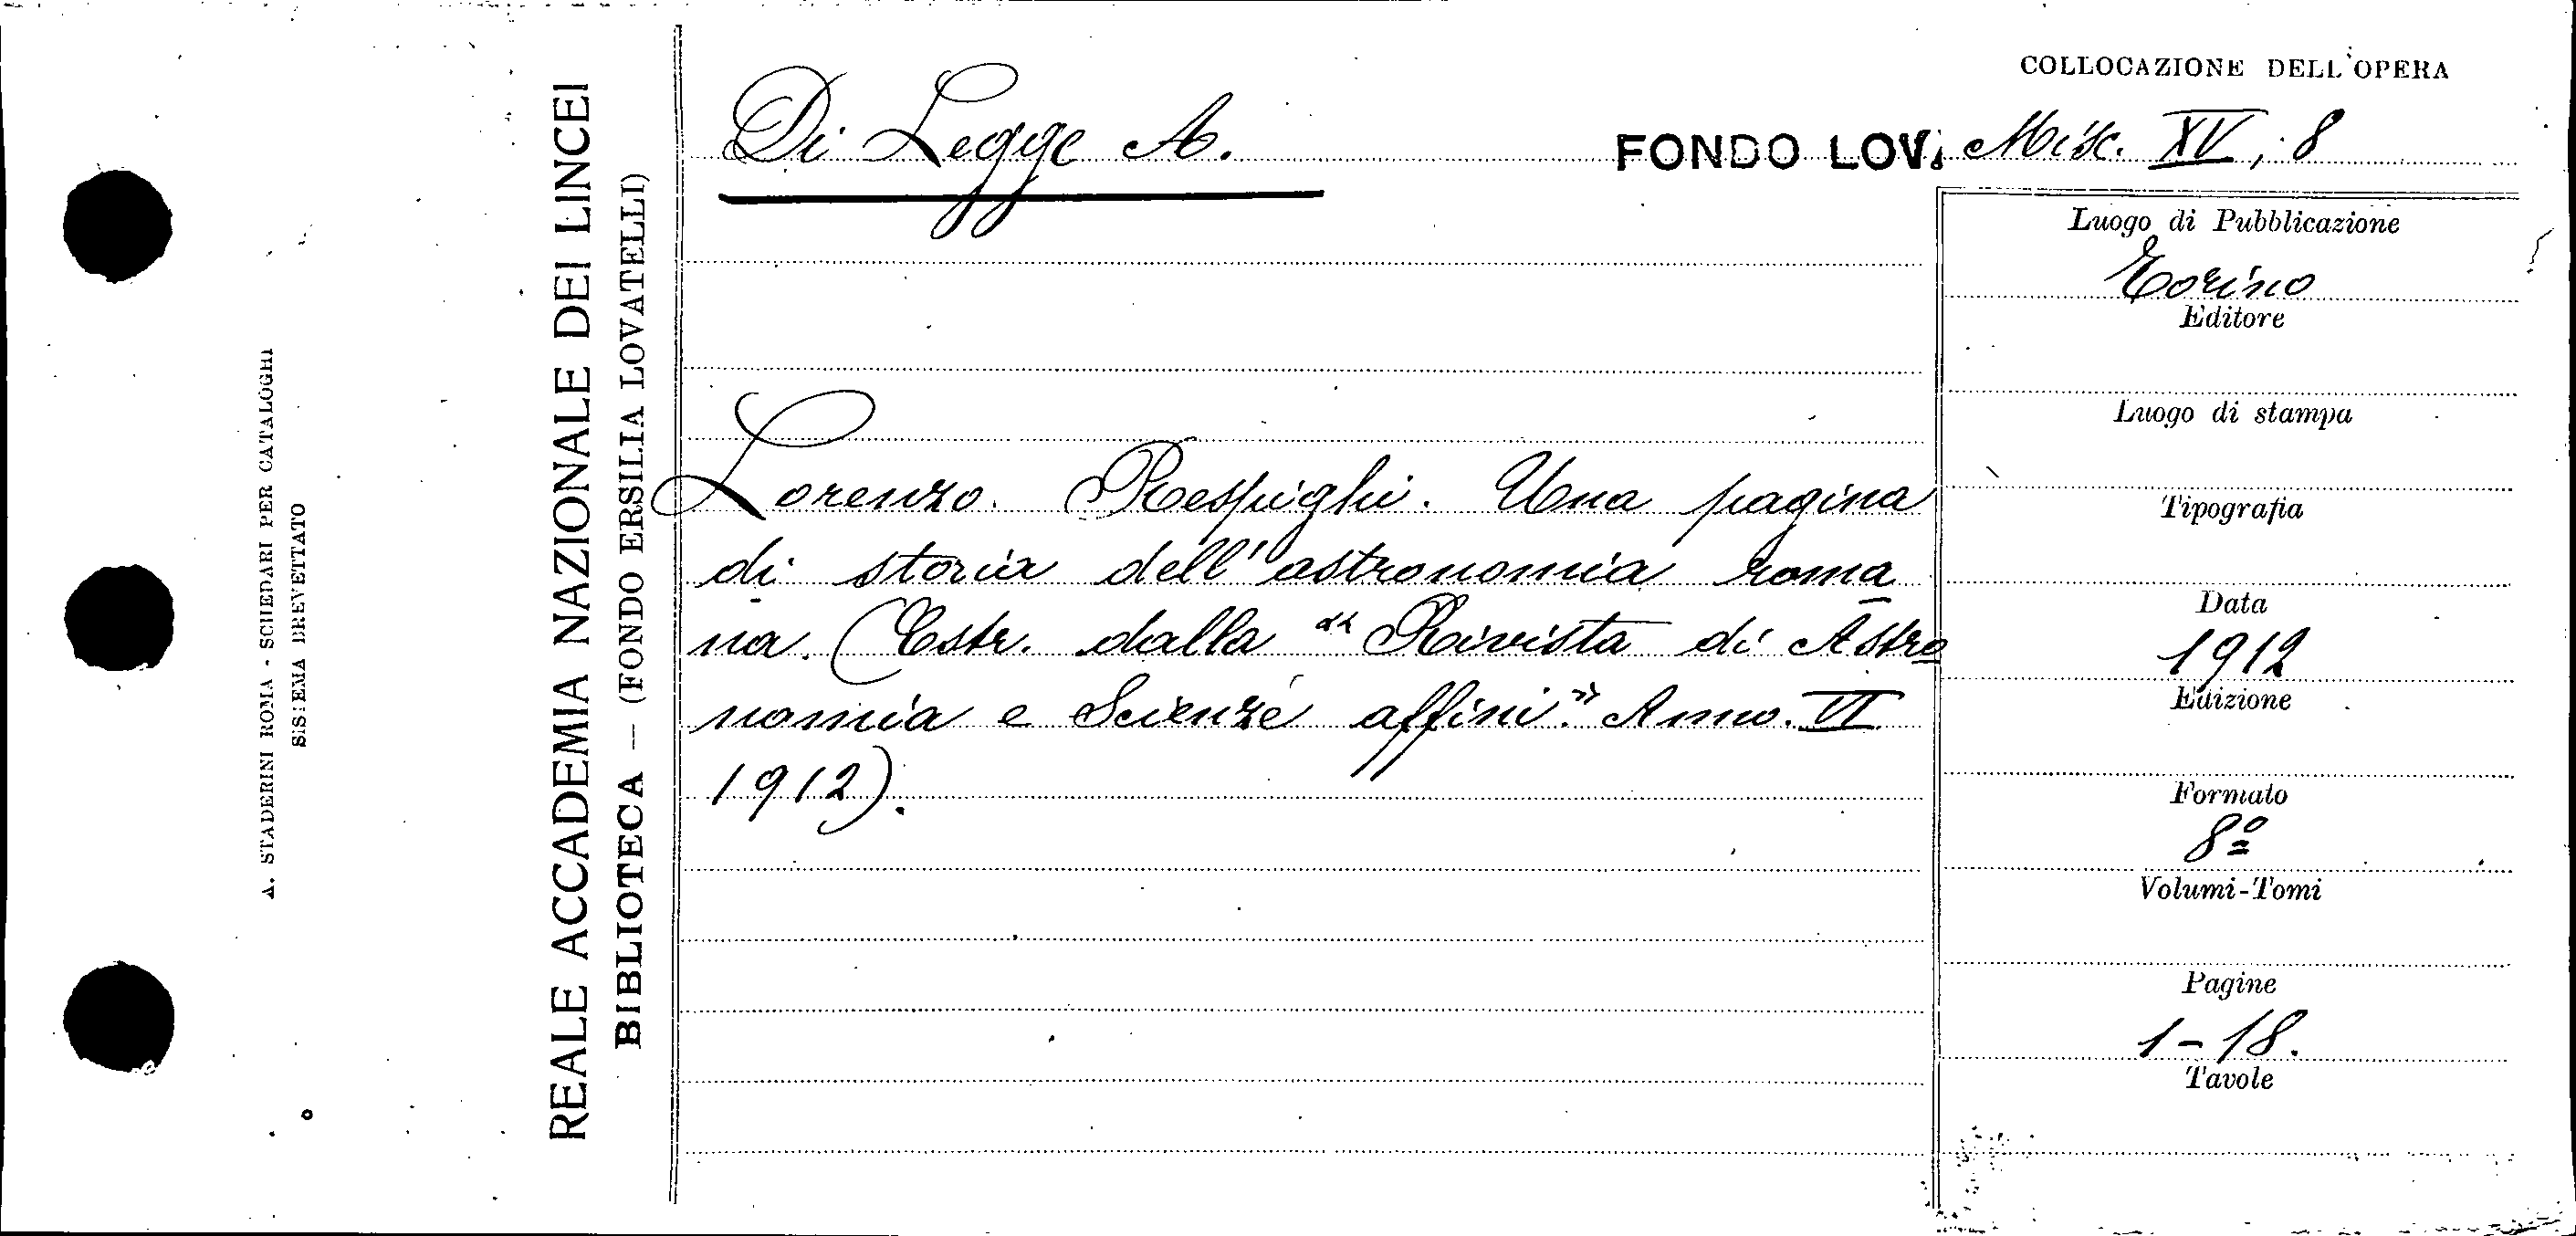 A. STADERINI ROMA - SCHEDARI PER CATALOGHI
SISTEMA BREVETTATO
REALE ACCADEMIA NAZIONALE DEI LINCEI
BIBLIOTECA — (FONDO ERSILIA LOVATELLI)
COLLOCAZIONE DELL'OPERA
Di Legge A.
FONDO LOV. Misc. XV, 8
Lorenzo Respighi. Una pagina
di storia dell'astronomia roma
na. (Estr. dalla "Rivista di Astro
nomia e Scienze affini." Anno. VI
1912).
Luogo di Pubblicazione
Torino
Editore
Luogo di stampa
Tipografia
Data
1912
Edizione
Formato
8º
Volumi-Tomi
Pagine
1-18.
Tavole